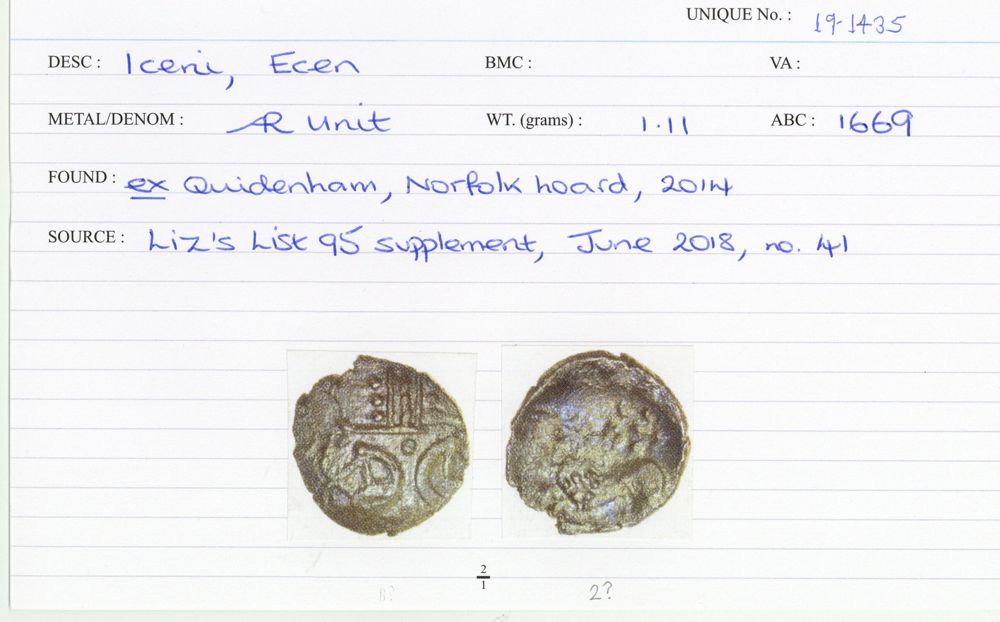 UNIQUE No. : 19-1435
DESC : Iceni, Ecen BMC : VA :
METAL/DENOM : AR Unit WT. (grams) : 1.11 ABC : 1669
FOUND : ex Quidenham, Norfolk hoard, 2014
SOURCE : Liz's List 95 supplement, June 2018, no. 41
2
1
2?